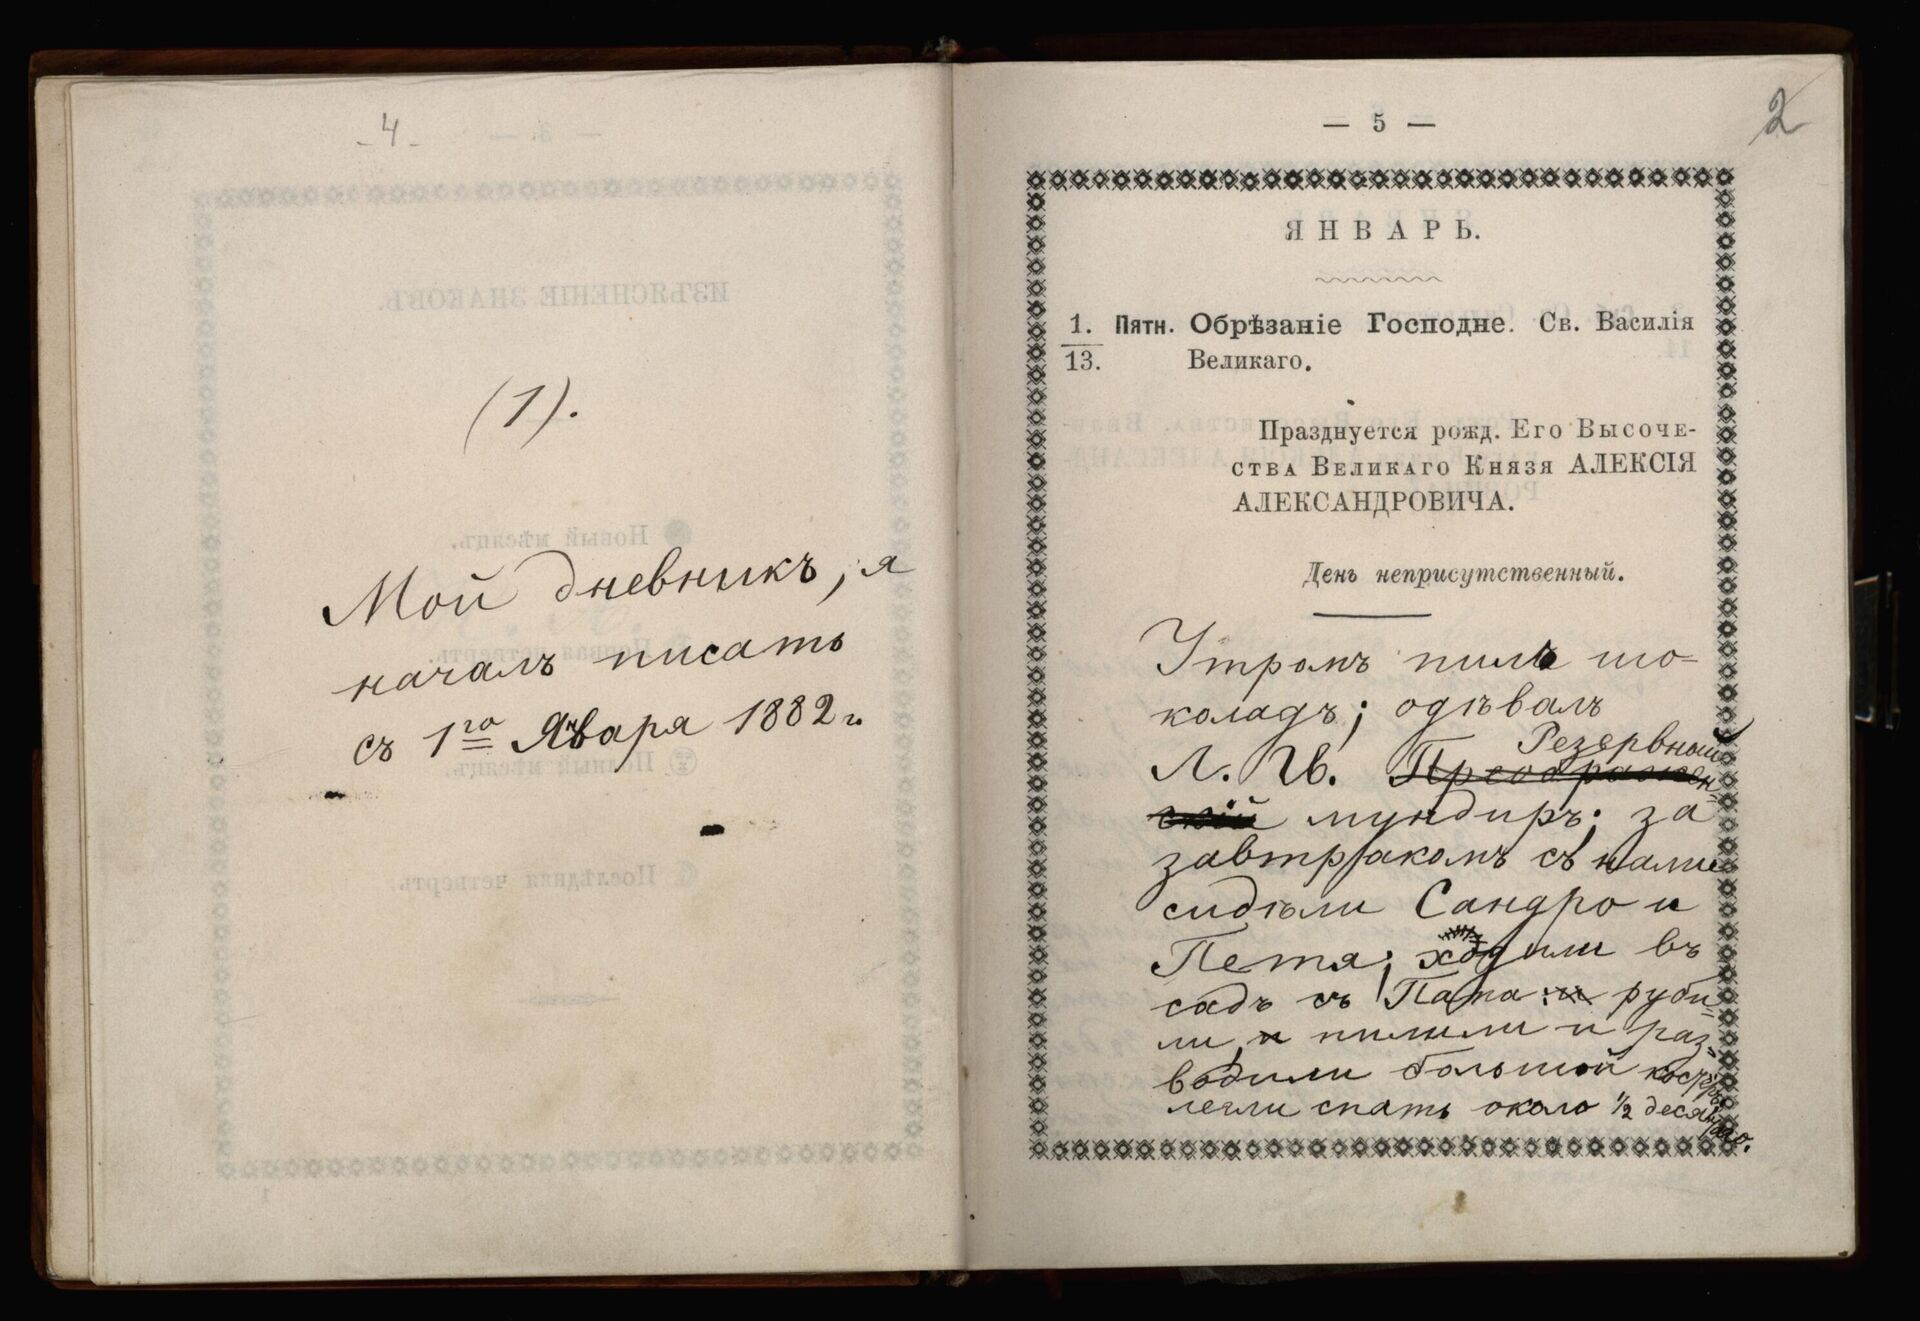 - 4 -
(1).
Мой дневникъ, я
началъ писать
съ 1го Января 1882 г.
2
— 5 —
ЯНВАРЬ.
1. Пятн. Обрѣзаніе Господне. Св. Василія
13. Великаго.
Празднуется рожд. Его Высоче-
ства Великаго Князя АЛЕКСІЯ
АЛЕКСАНДРОВИЧА.
День неприсутственный.
Утромъ пилъ шо=
коладъ; одѣвалъ
Резервный
Л. Гв. Преображен=
скій мундиръ; за
завтракомъ съ нами
сидѣли Сандро и
Петя; ходили въ
садъ съ Папа и руби=
ли, и пилили и раз=
водили большой костеръ
легли спать около 1/2 десятаго.